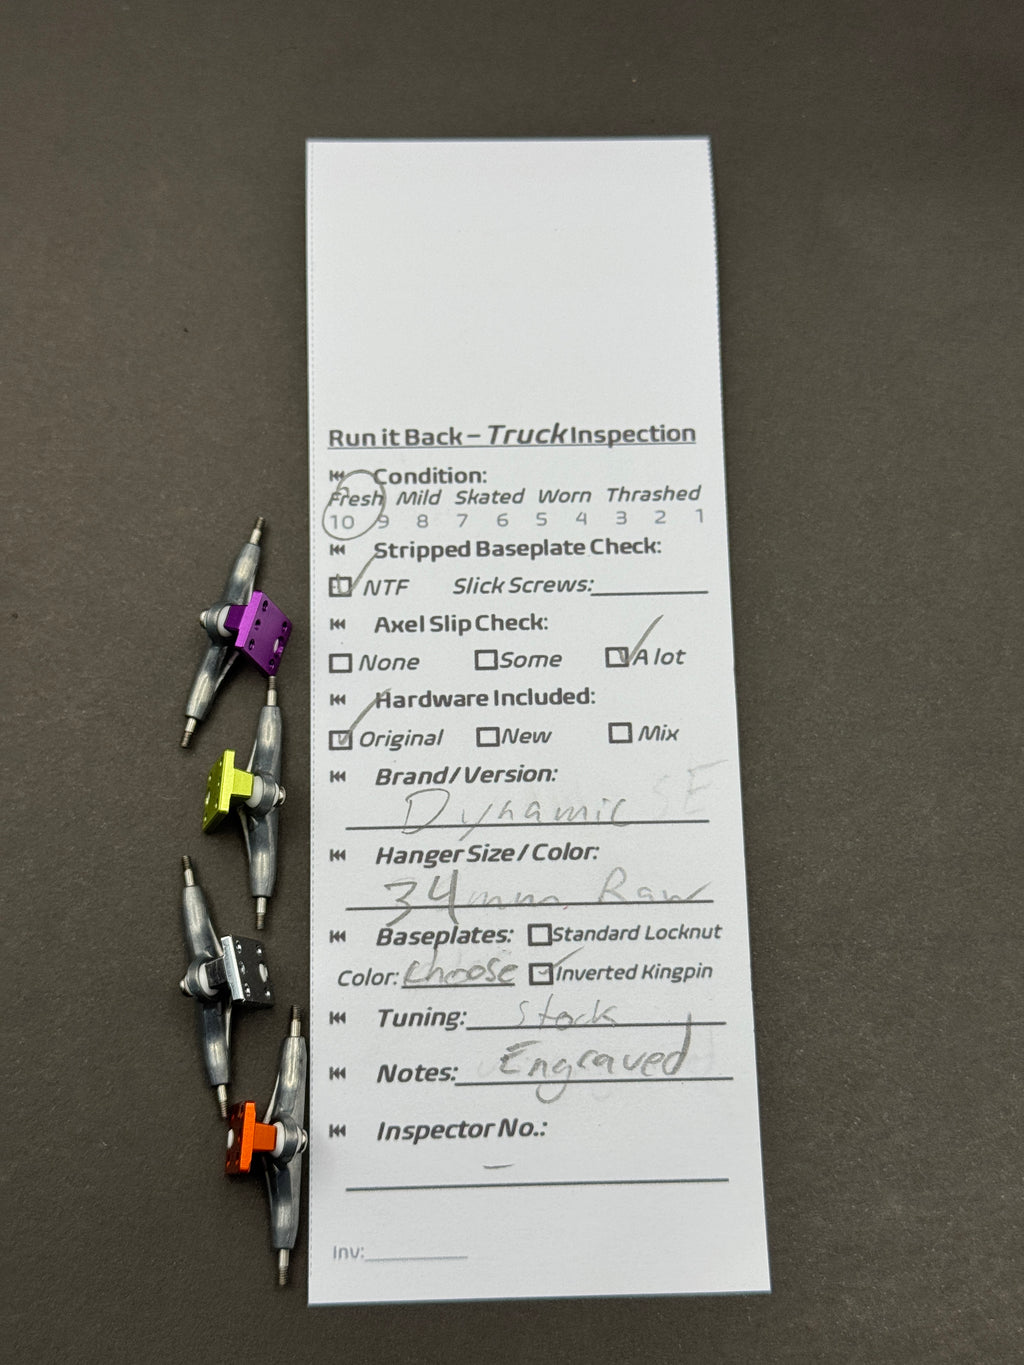 Run it Back – Truck Inspection
Condition:
Fresh Mild Skated Worn Thrashed
10 9 8 7 6 5 4 3 2 1
Stripped Baseplate Check:
NTF Slick Screws:
Axel Slip Check:
None Some A lot
Hardware Included:
Original New Mix
Brand/Version:
Dynamic SE
Hanger Size/Color:
34mm Raw
Baseplates: Standard Locknut
Color: Choose Inverted Kingpin
Tuning: Stock
Notes: Engraved
Inspector No.:
–
Inv: